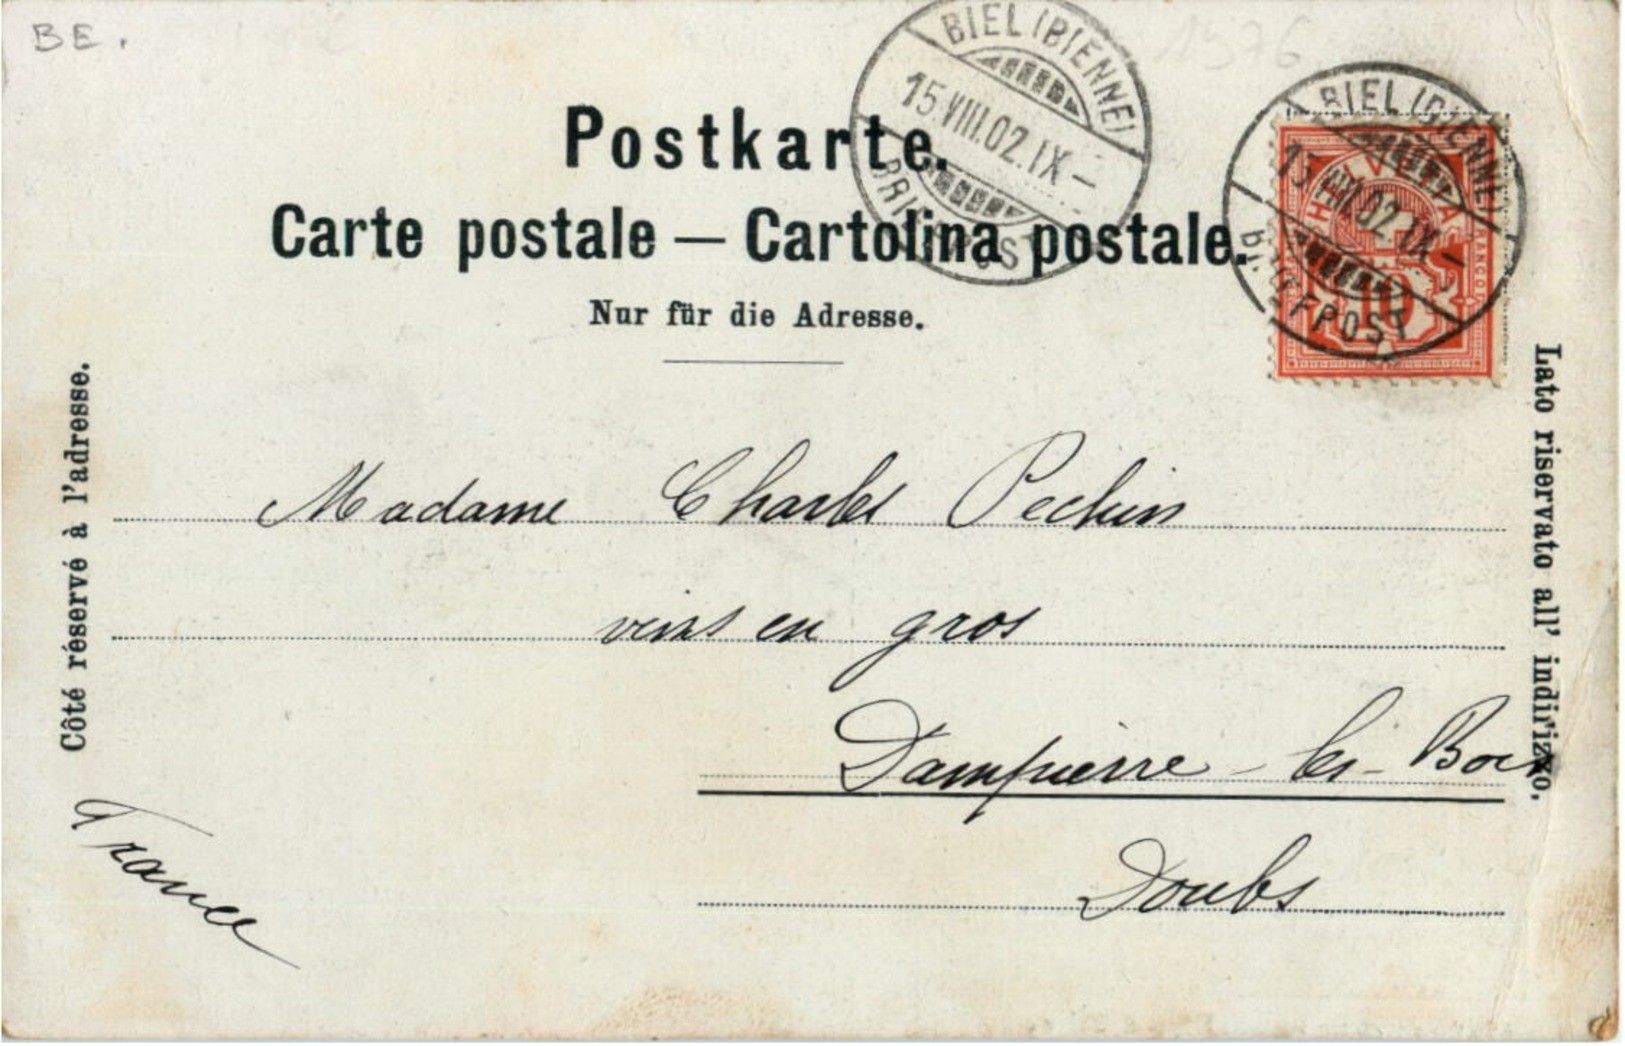 BE.
1976
BIEL (BIENNE)
15.VIII.02.IX–
BRIEFPOST
BIEL (BIENNE)
15.VIII.02.IX–
BRIEFPOST
HELVETIA
FRANCO
10
Postkarte.
Carte postale — Cartolina postale.
Nur für die Adresse.
Côté réservé à l'adresse.
Lato riservato all' indirizzo.
Madame Charles Pechin
vins en gros
Dampierre-les-Bois
Doubs
France